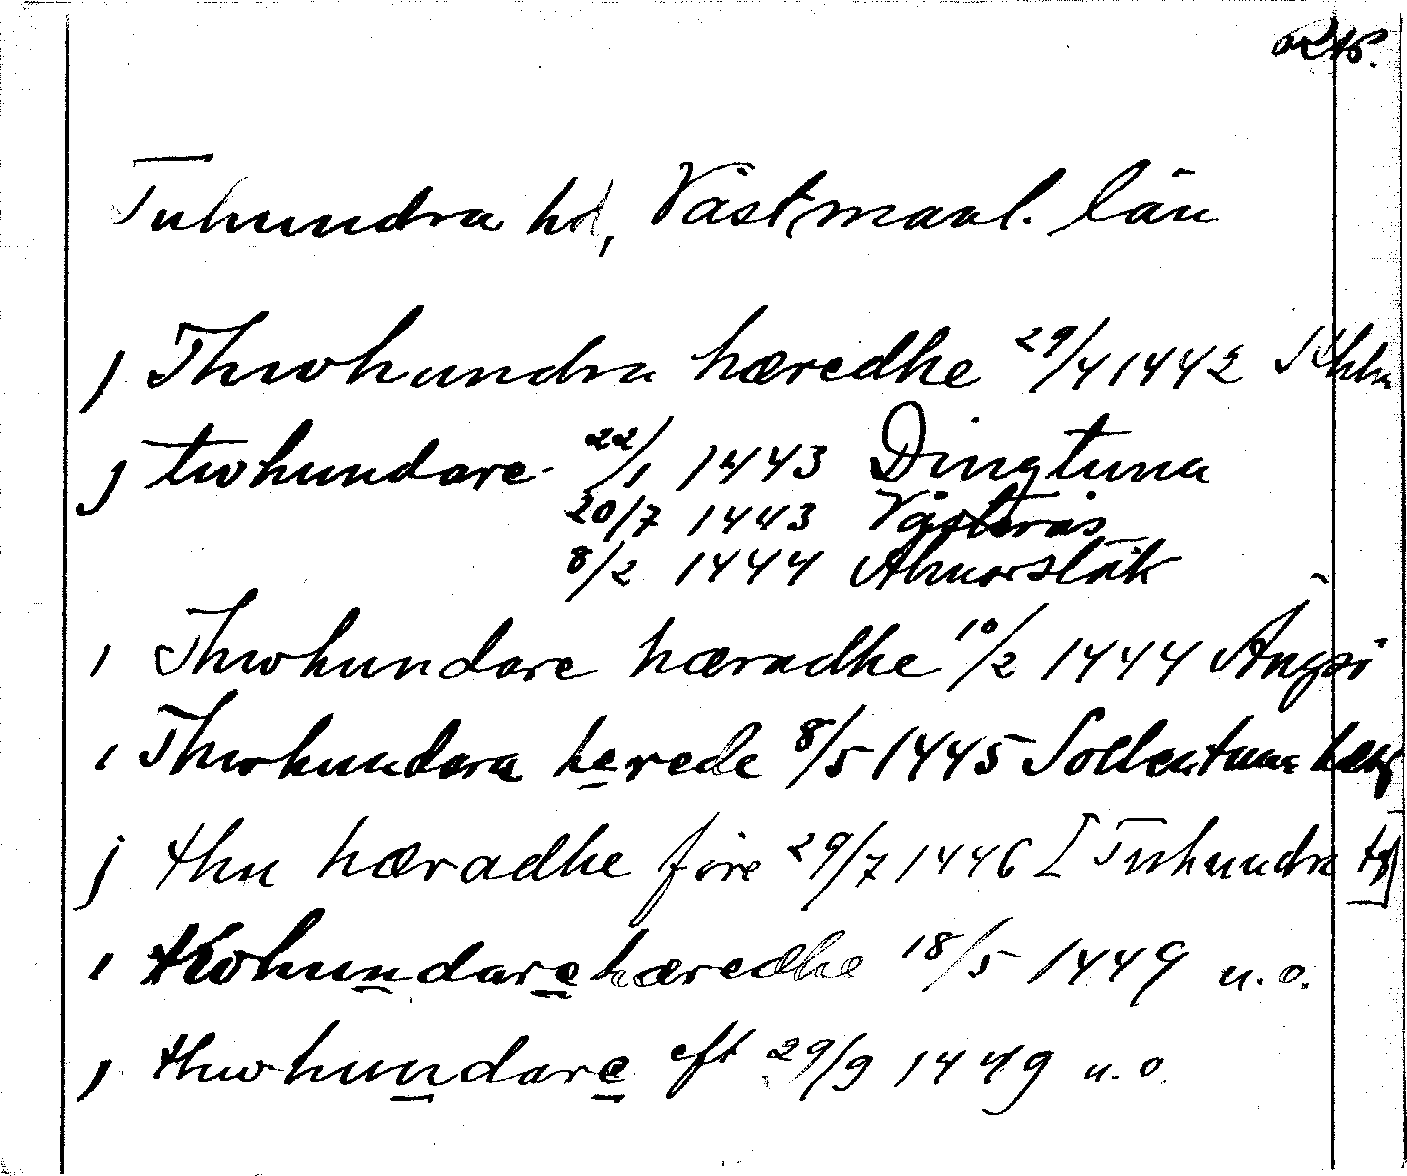 Tuhundra hd, Västmanl. län
j Thwhundra hæredhe 29/4 1442 Sthlm
j twhundare 22/1 1443 Dingtuna
20/7 1443 Västerås
8/2 1444
i Thwhundare hæradhe 10/2 1444 Ängsö
i Thwhundara herede 8/5 1445 Sollentuna
j thu hæradhe före 29/7 1446 [Tuhundra
i twhundare hæredhe 18/5 1449 u.o.
j thwhundare eft 29/9 1449 u.o.